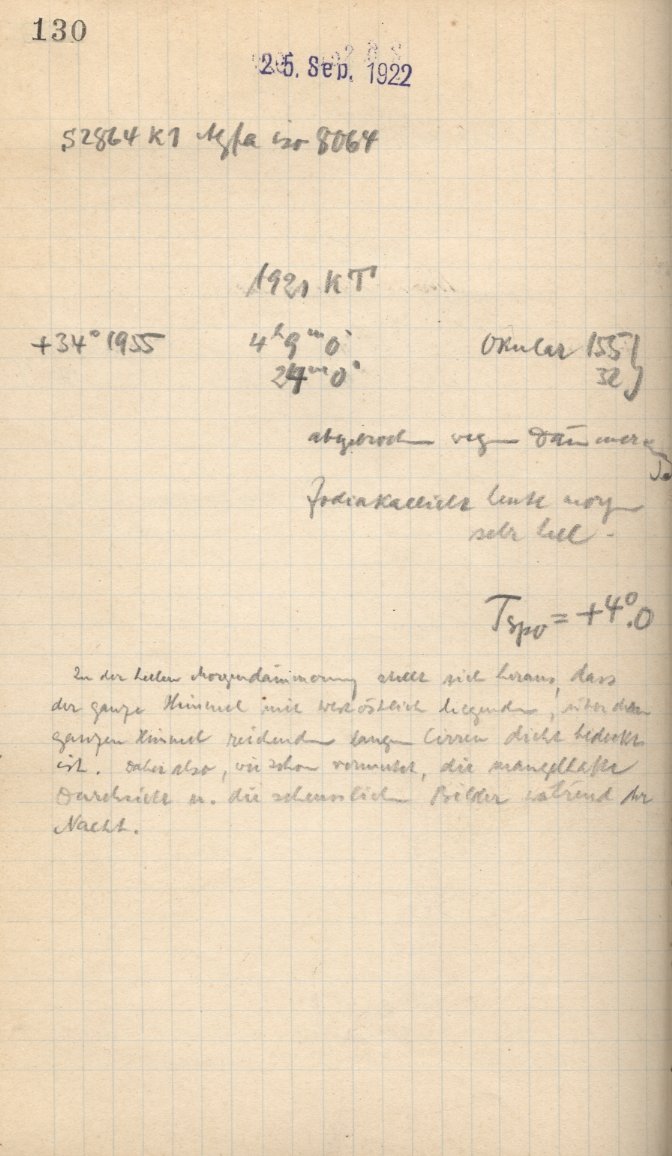 130
25. Sep. 1922
S2864 K1 Agfa iso 8064
1921 KT
+34° 1955 4ʰ 9ᵐ 0ˢ Okular 155
24ᵐ 0ˢ 32
abgebrochen wegen Dämmerung
Zodiakallicht heute morgen
sehr hell.
Tspo = +4°.0
In der hellen Morgendämmerung stellt sich heraus, dass
der ganze Himmel mit westöstlich liegenden, über den
ganzen Himmel reichenden langen Cirren dicht bedeckt
ist. Daher also, wie schon vermutet, die mangelhafte
Durchsicht u. die scheusslichen Bilder während der
Nacht.